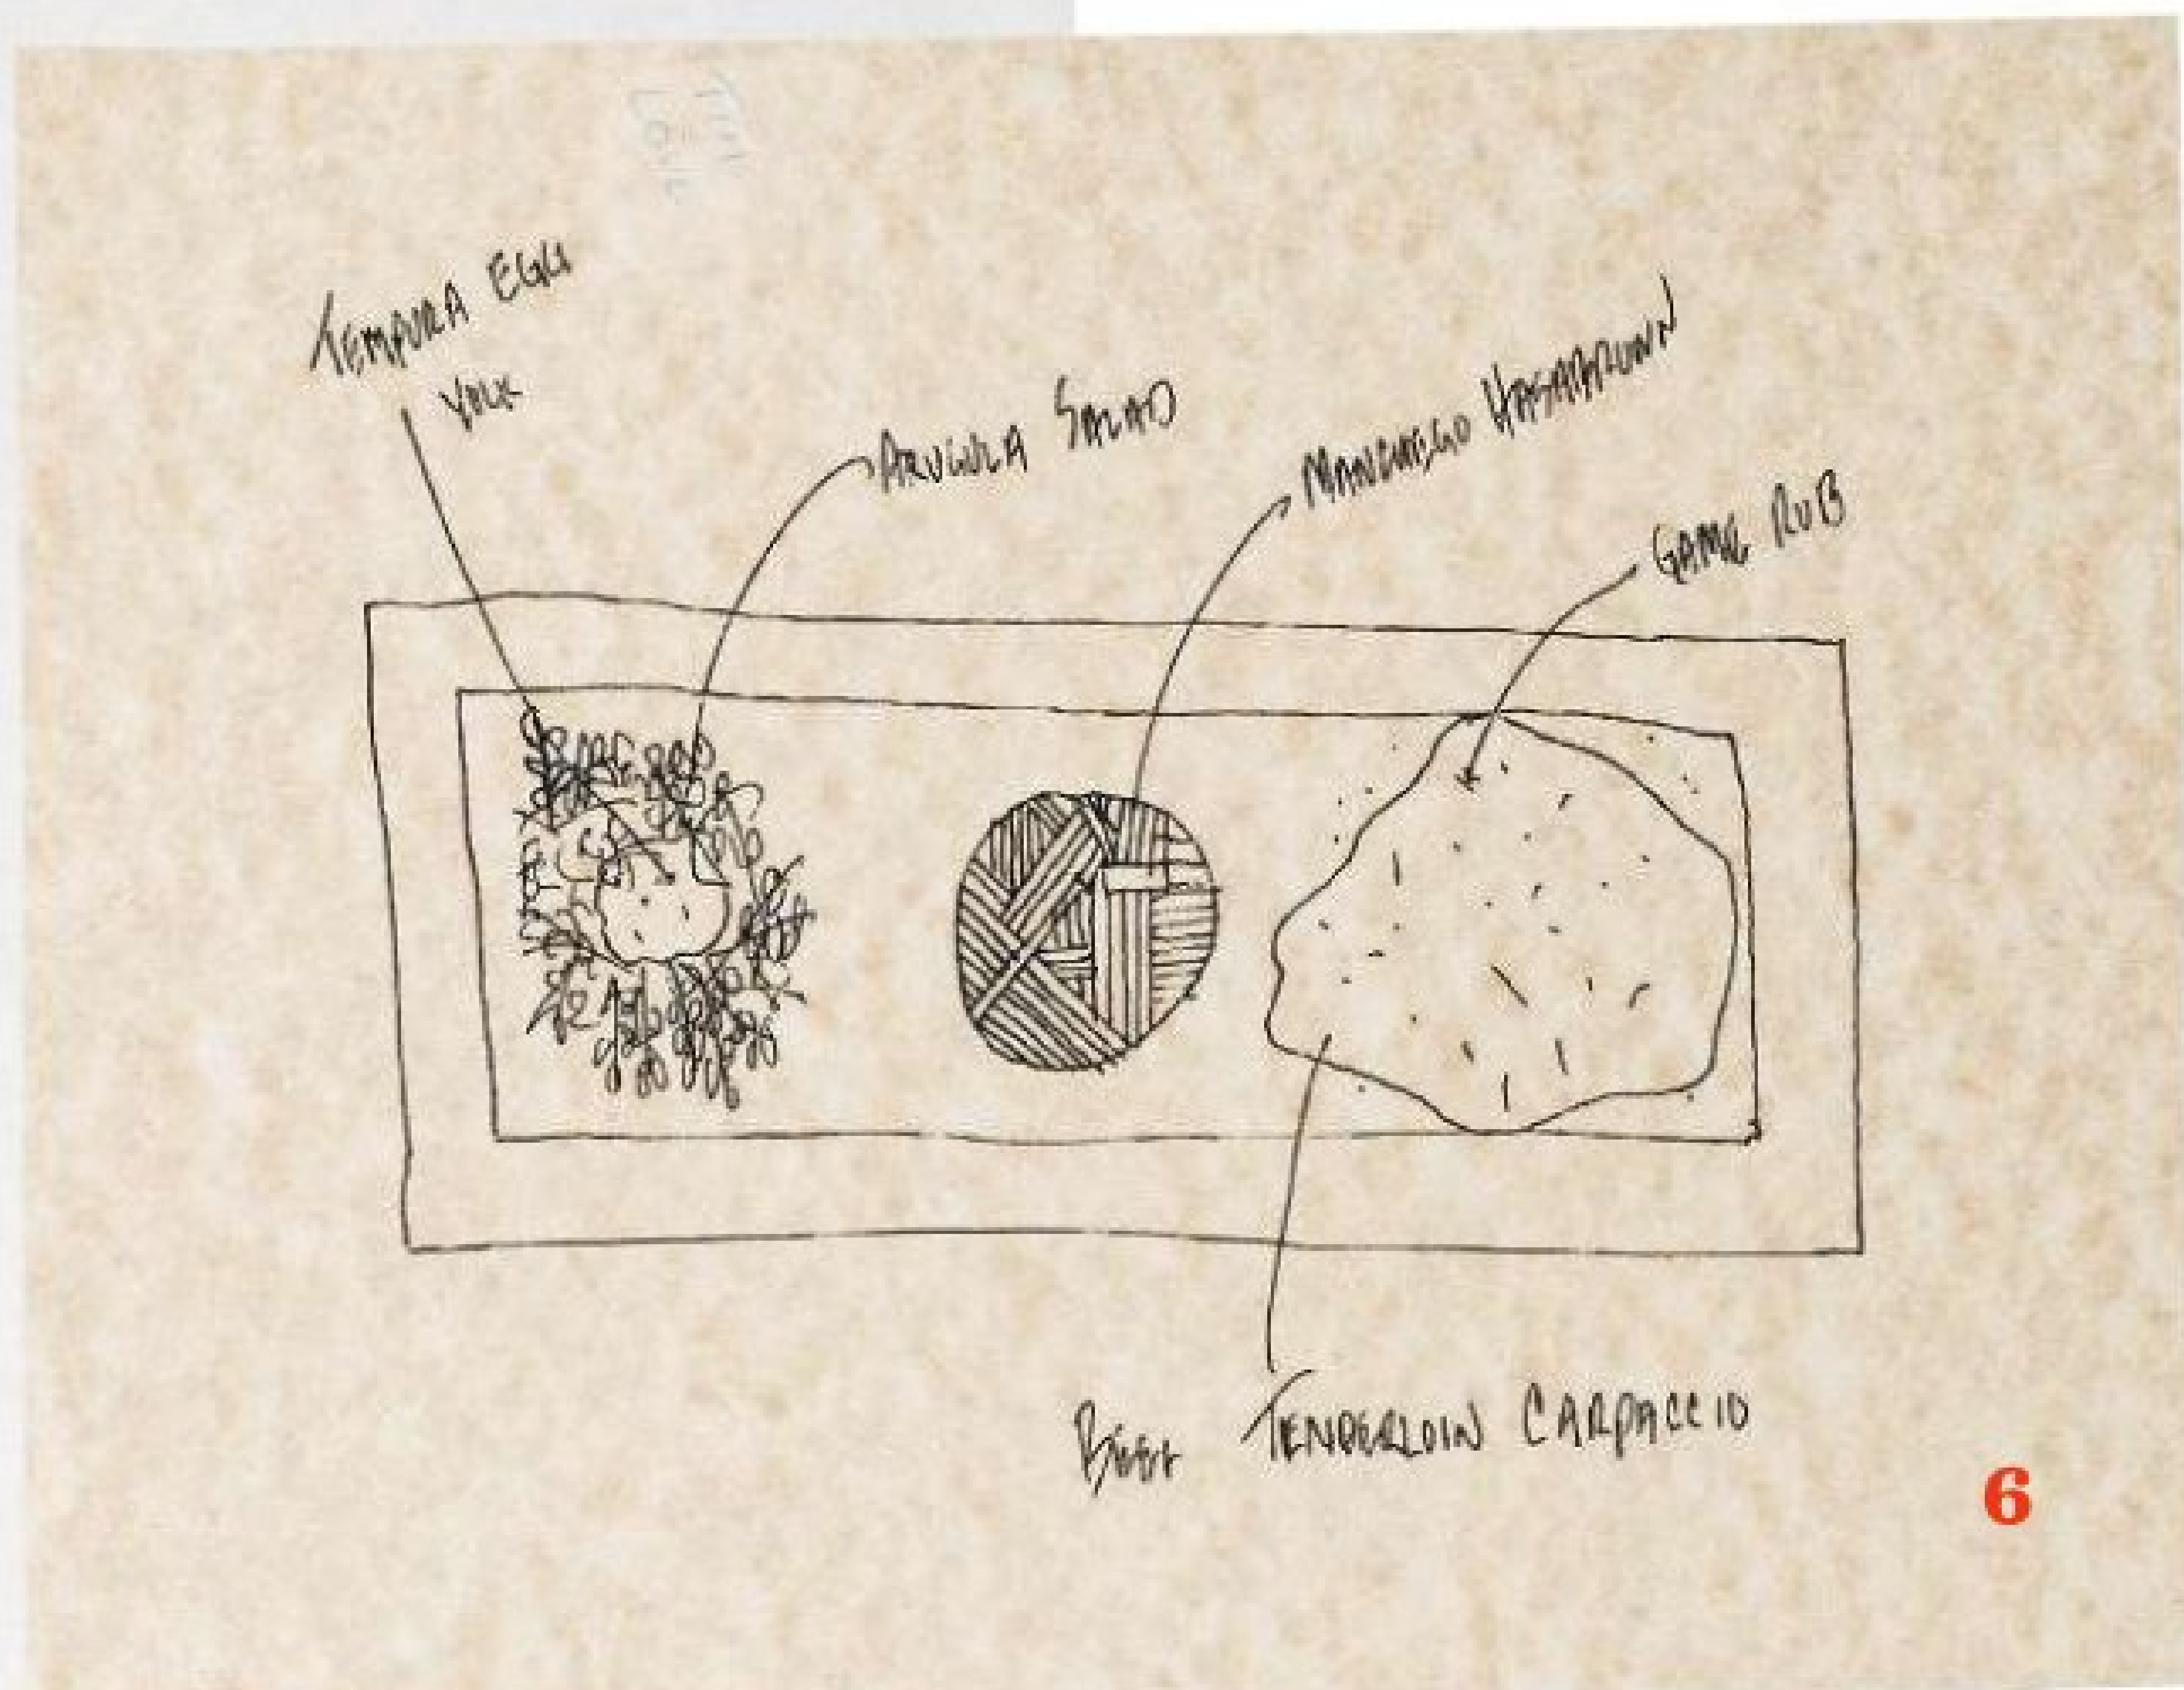 TEMPURA EGG
YOLK
ARUGULA SALAD
MANCHEGO HASHBROWN
GAME RUB
BEEF TENDERLOIN CARPACCIO
6